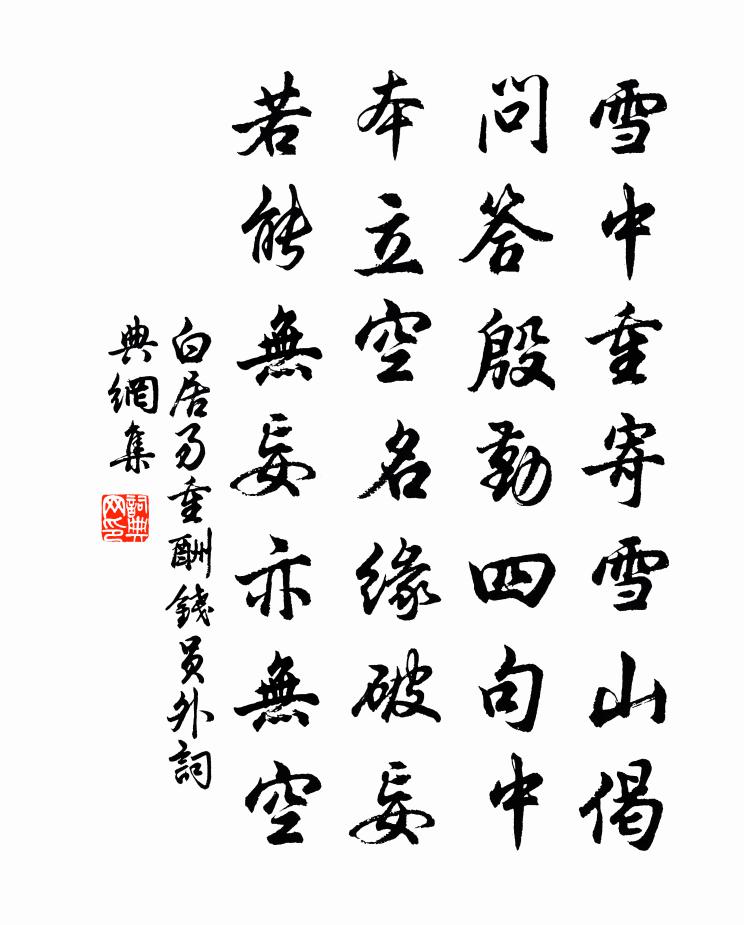 雪中重寄雪山偈
問答殷勤四句中
本立空名緣破妄
若能無妄亦無空
白居易重酬錢員外詞
典網集
詞典
网印